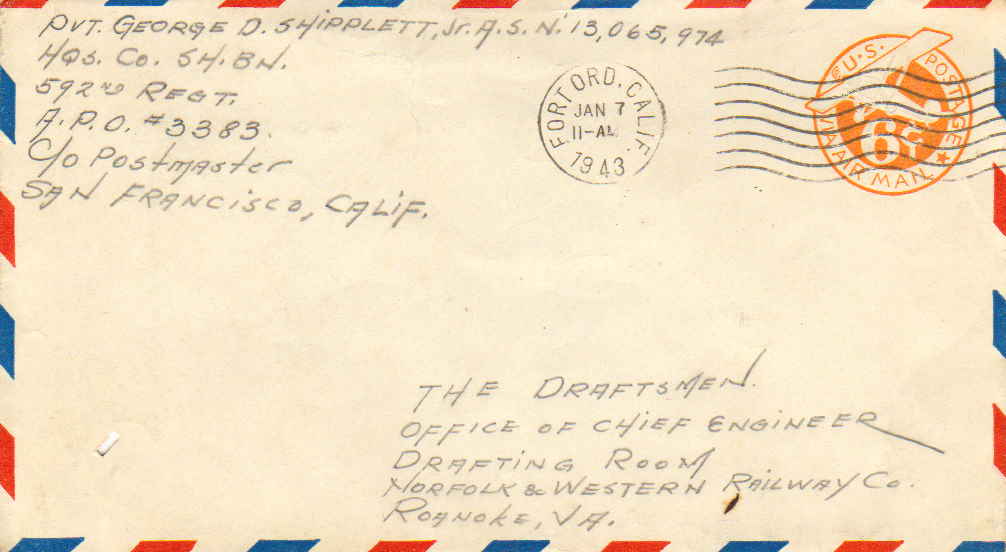 PVT. GEORGE D. SHIPPLETT, Jr. A.S.N. 13,065,974
HQS. CO. SH. BN.
592ND REGT.
A.P.O. #3383.
C/O Postmaster
SAN FRANCISCO, CALIF.
FORT ORD, CALIF.
JAN 7
11-AM
1943
U.S. POSTAGE
6¢
VIA AIR MAIL
THE DRAFTSMEN.
OFFICE OF CHIEF ENGINEER
DRAFTING ROOM
NORFOLK & WESTERN RAILWAY CO.
ROANOKE, VA.